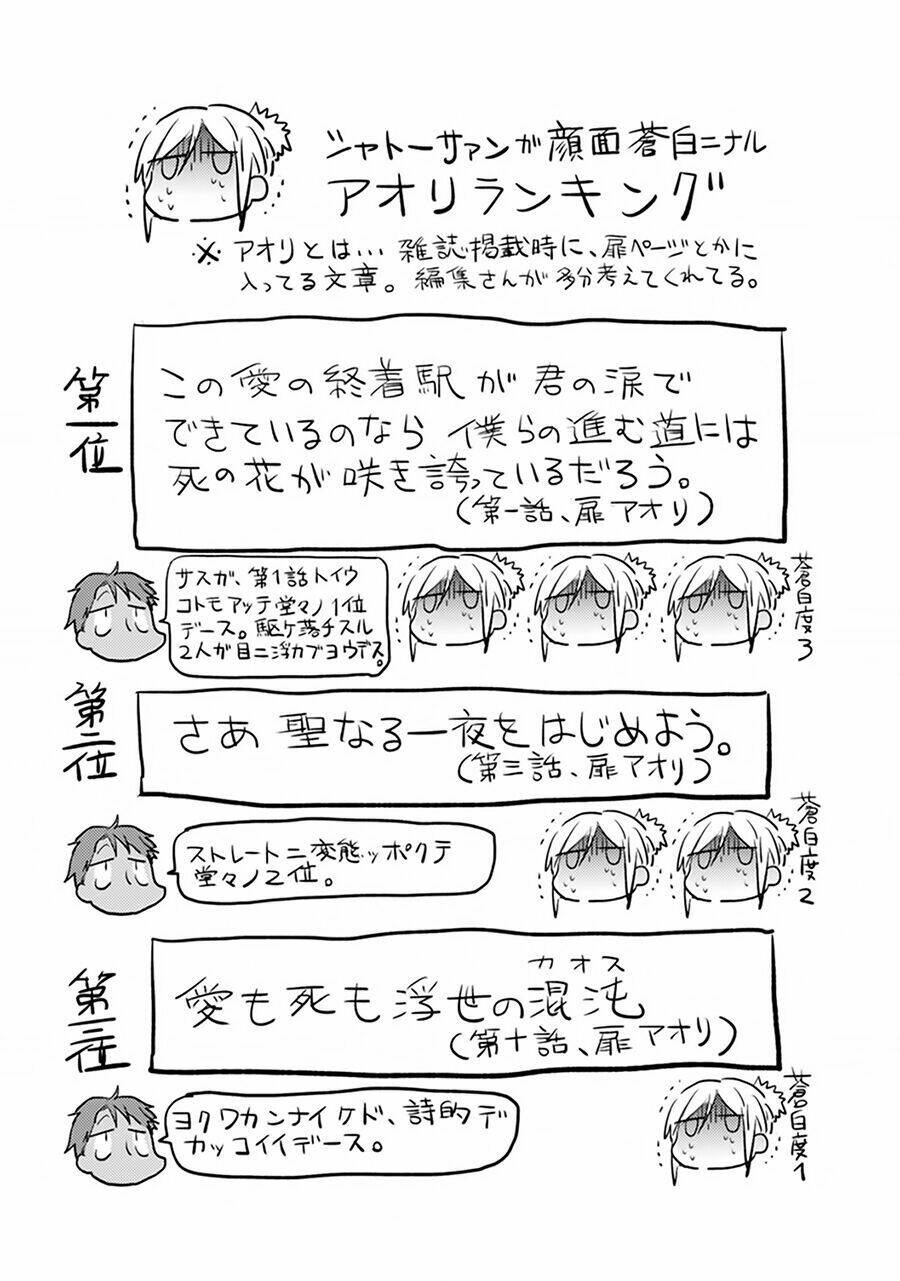 シャトーサァンが顔面蒼白ニナル
アオリランキング
※アオリとは…雑誌掲載時に、扉ページとかに
入ってる文章。編集さんが多分考えてくれてる。
第一位
この愛の終着駅が君の涙で
できているのなら 僕らの進む道には
死の花が咲き誇っているだろう。
(第一話、扉アオリ)
サスガ、第1話トイウ
コトモアッテ堂々ノ1位
デース。駆ケ落チスル
2人が目ニ浮カブヨウデス。
蒼白度3
第二位
さあ 聖なる一夜をはじめよう。
(第三話、扉アオリ)
ストレートニ変態ッポクテ
堂々ノ2位。
蒼白度2
第三位
カオス
愛も死も浮世の混沌
(第十話、扉アオリ)
ヨクワカンナイケド、詩的デ
カッコイイデース。
蒼白度1